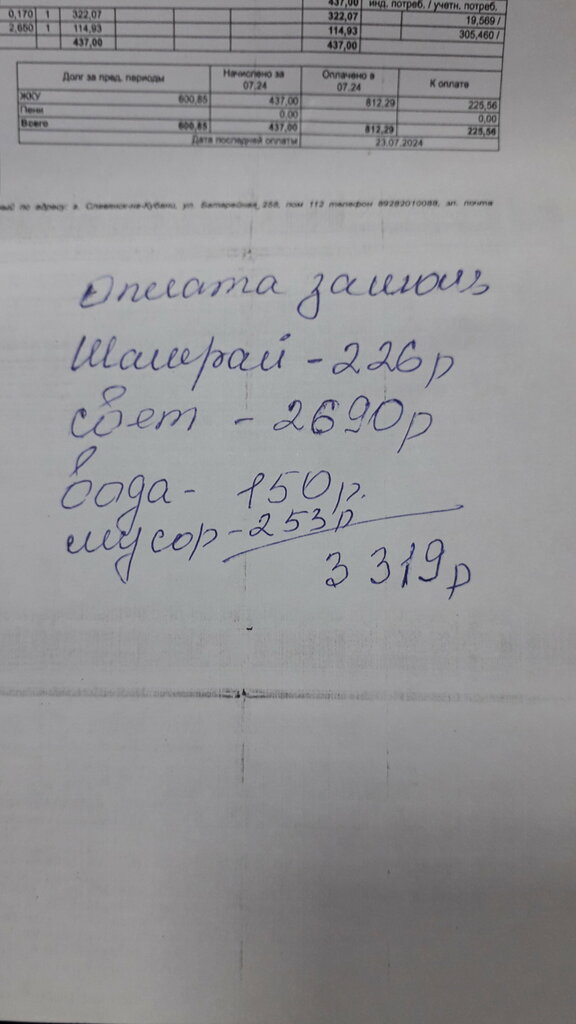 437,00 инд. потреб. / учетн. потреб.
0,170 1 322,07 322,07 19,569 /
2,650 1 114,93 114,93 305,460 /
437,00 437,00
Долг за пред. периоды Начислено за 07.24 Оплачено в 07.24 К оплате
ЖКУ 600,85 437,00 812,29 225,56
Пени 0,00 0,00
Всего 600,85 437,00 812,29 225,56
Дата последней оплаты 23.07.2024
по адресу: г. Славянск-на-Кубани, ул. Батарейная, 258, пом 112 телефон 89282010088, эл. почта
Оплата за июль
Шамрай - 226р
свет - 2690р
вода - 150р.
мусор - 253р
3 319р